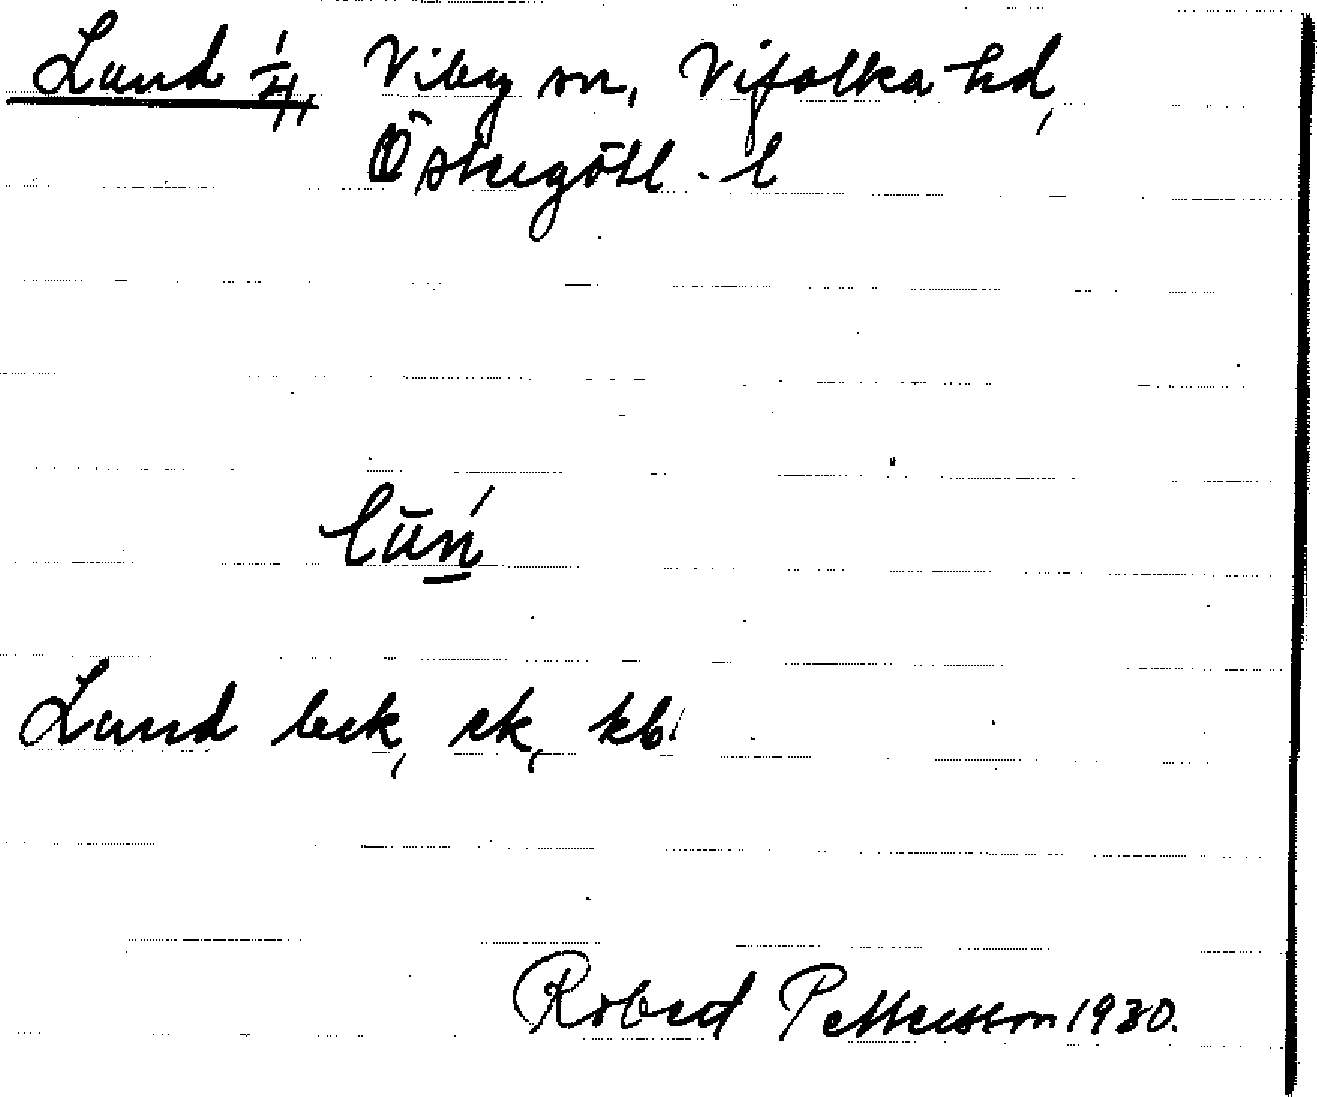 Lund 1/4, Viby sn, Vifolka hd,
Östergötl. l
lūń
Lund beck, ek, kb.
Robert Pettersson 1930.